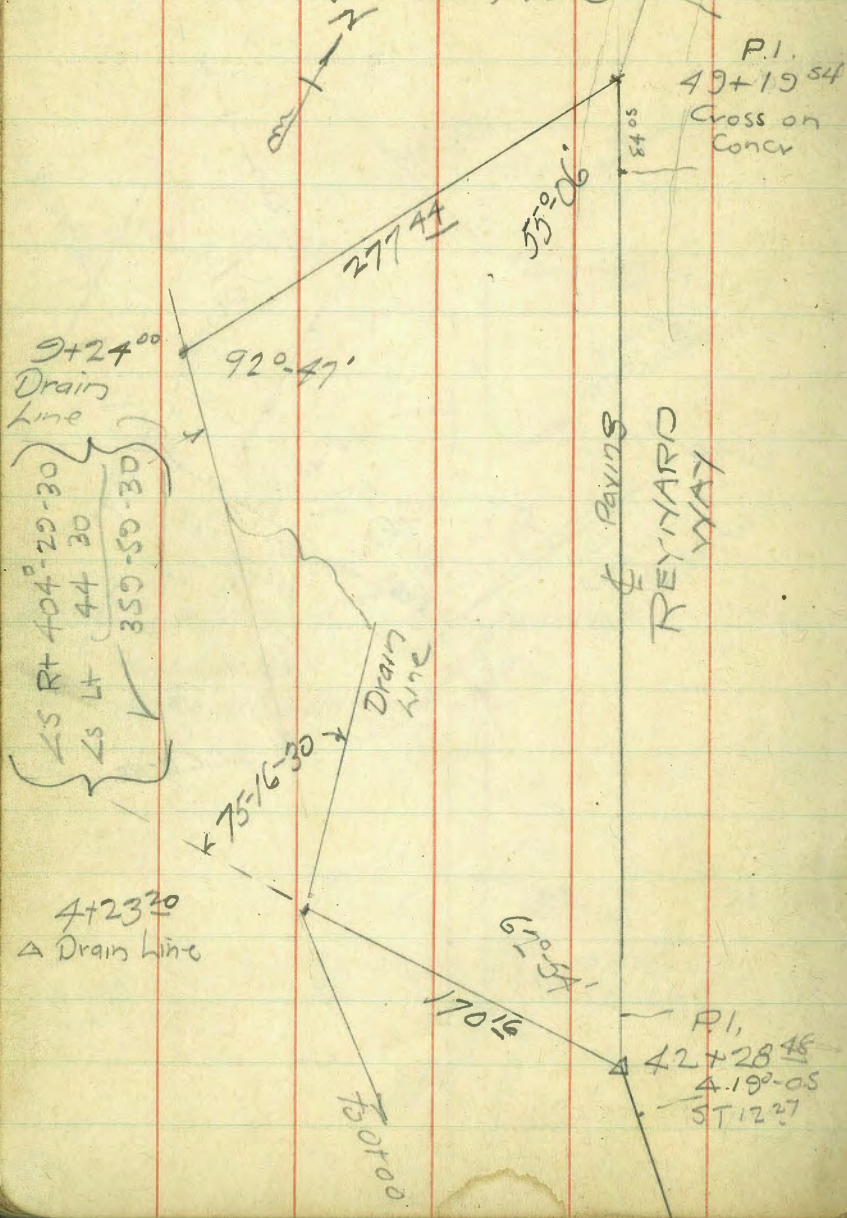 N
P.I.
49+19 54
Cross on
Concr
84 05
55°-06'
277 44
9+24 00
Drain
Line
92°-47'
∠s Rt 404°-29-30
∠s Lt 44 30
359-59-30
℄ Paving
REYNARD
WAY
Drain
Line
75-16-30
4+23 20
△ Drain Line
170 16
P.I.
42+28 48
Δ 19°-05
ST 12 27
0+00